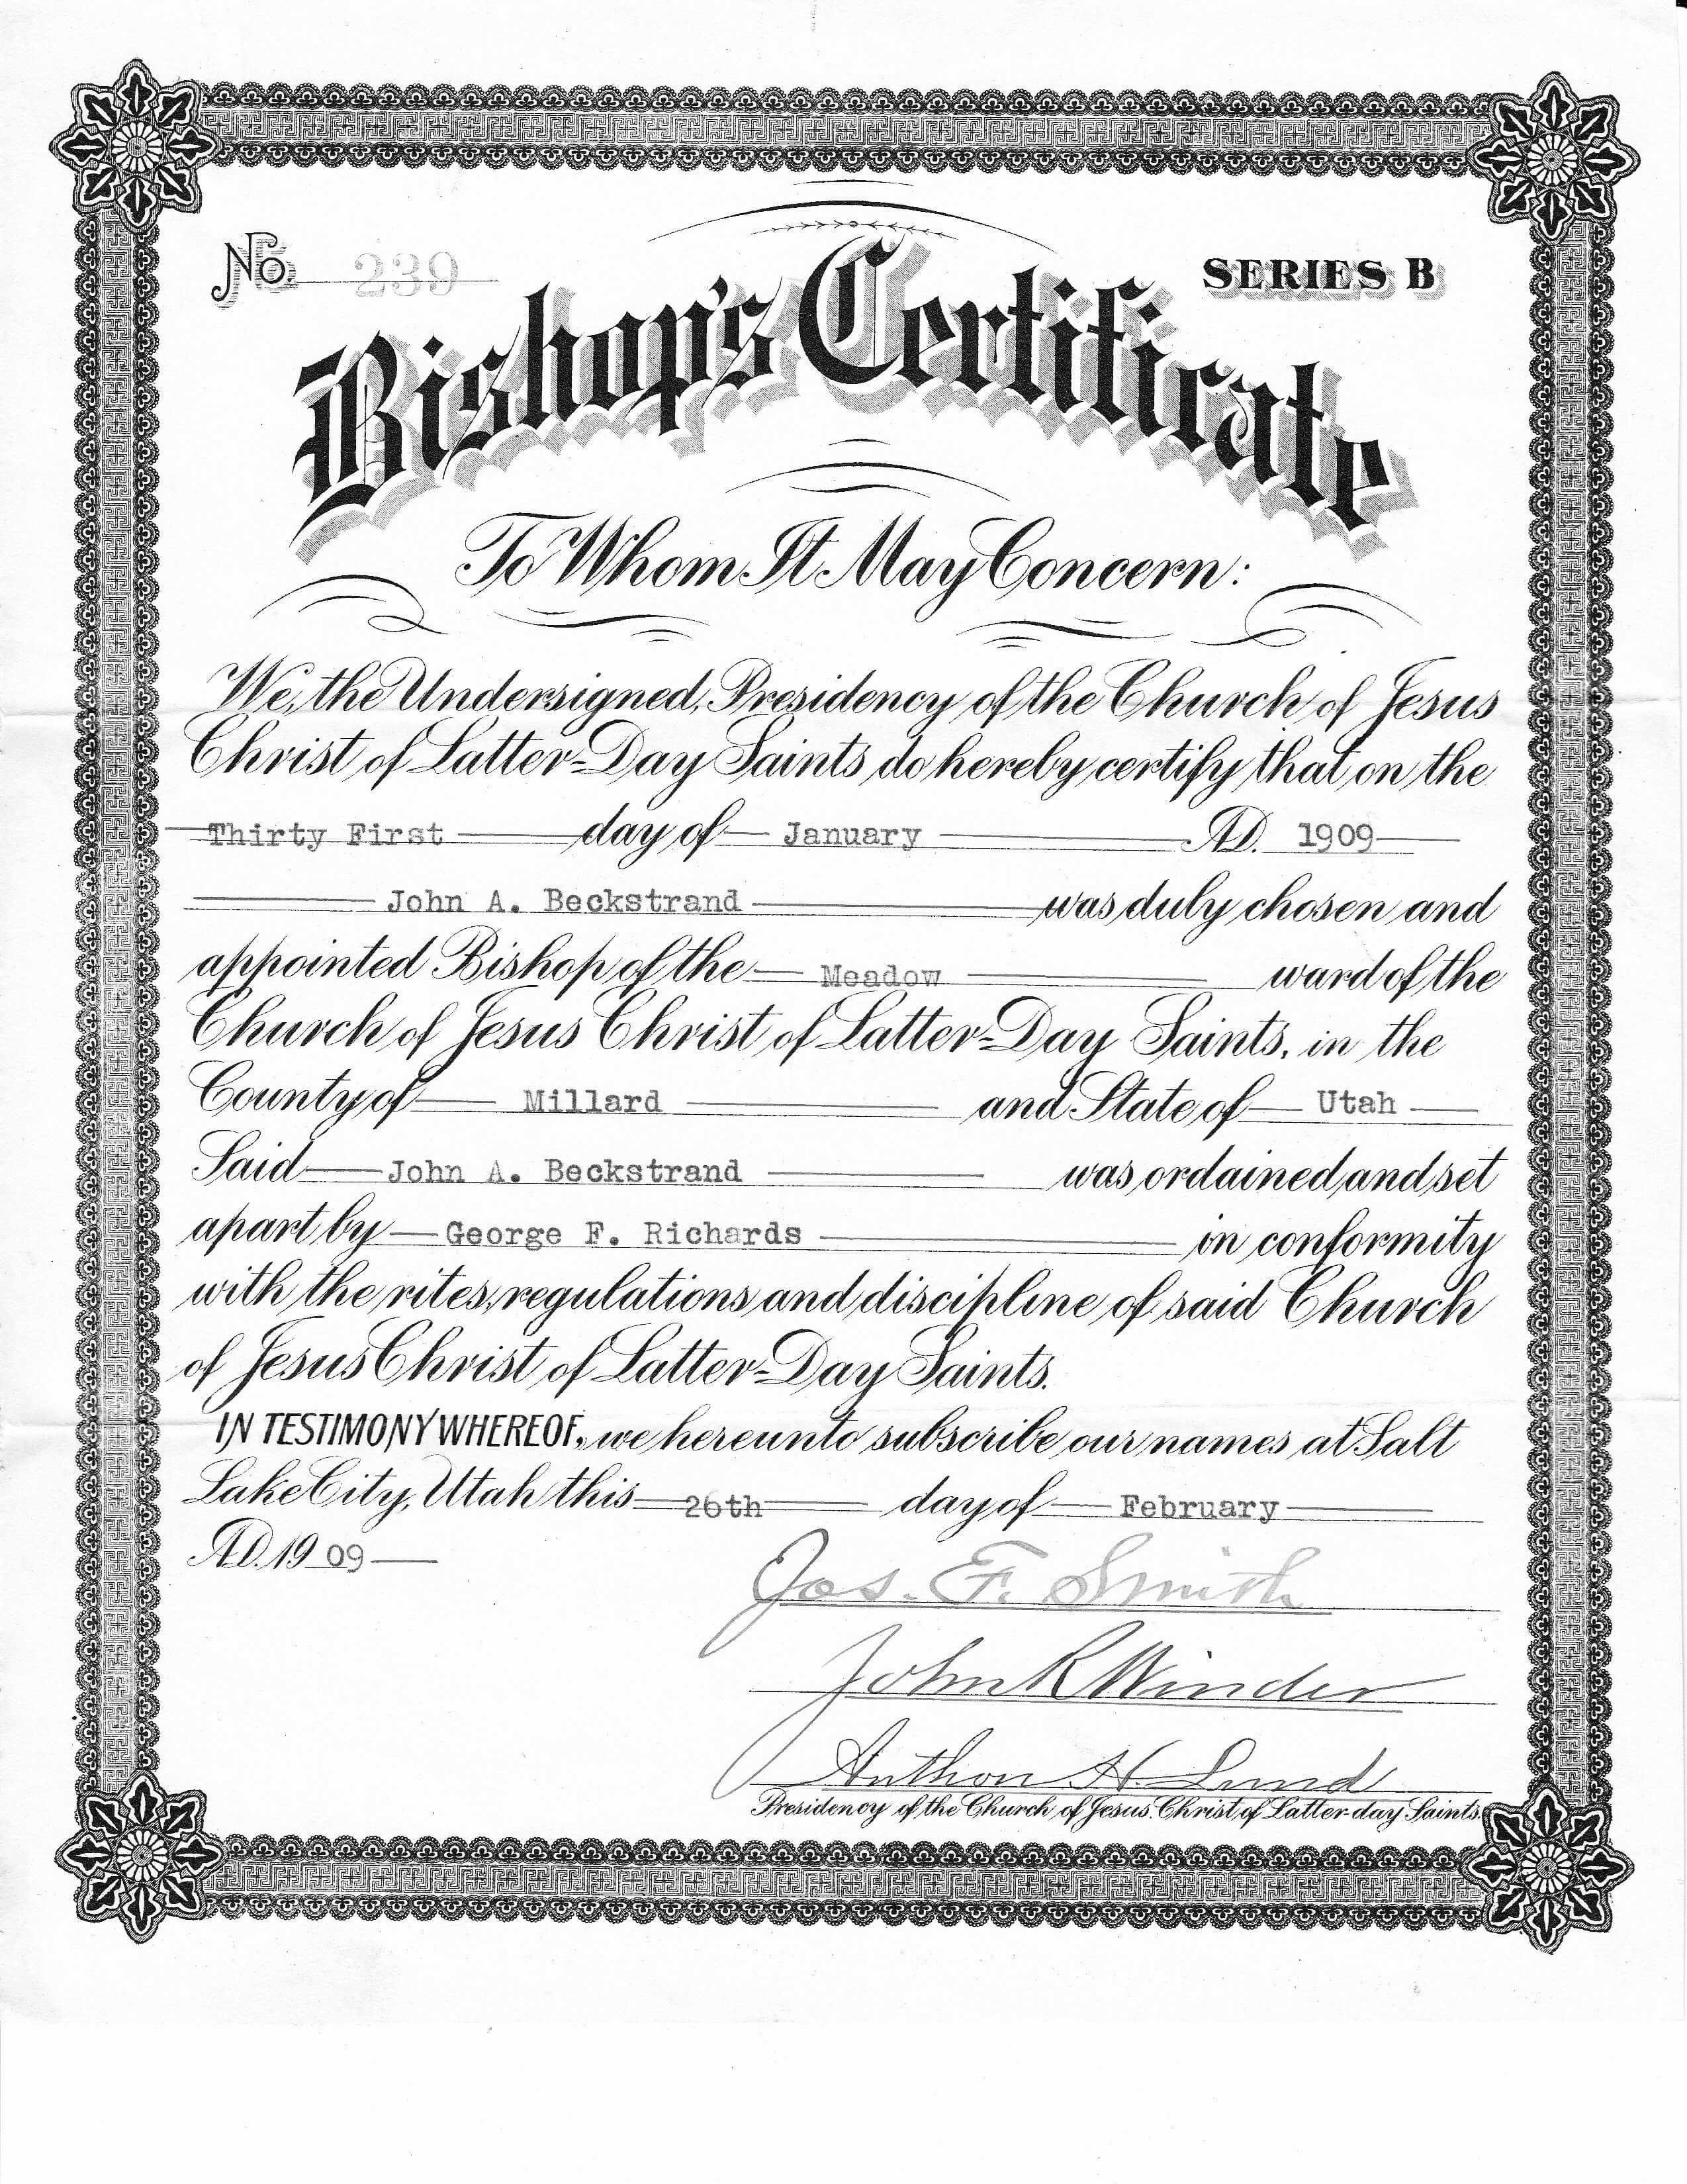 No. 239
SERIES B
Bishop's Certificate
To Whom It May Concern:
We, the Undersigned, Presidency of the Church of Jesus
Christ of Latter=Day Saints do hereby certify that on the
Thirty First day of January A.D. 1909
John A. Beckstrand was duly chosen and
appointed Bishop of the Meadow ward of the
Church of Jesus Christ of Latter=Day Saints, in the
County of Millard and State of Utah
Said John A. Beckstrand was ordained and set
apart by George F. Richards in conformity
with the rites, regulations and discipline of said Church
of Jesus Christ of Latter=Day Saints.
IN TESTIMONY WHEREOF, we hereunto subscribe our names at Salt
Lake City, Utah this 26th day of February
A.D. 1909
Jos. F. Smith
John R Winder
Anthon H. Lund
Presidency of the Church of Jesus Christ of Latter-day Saints.